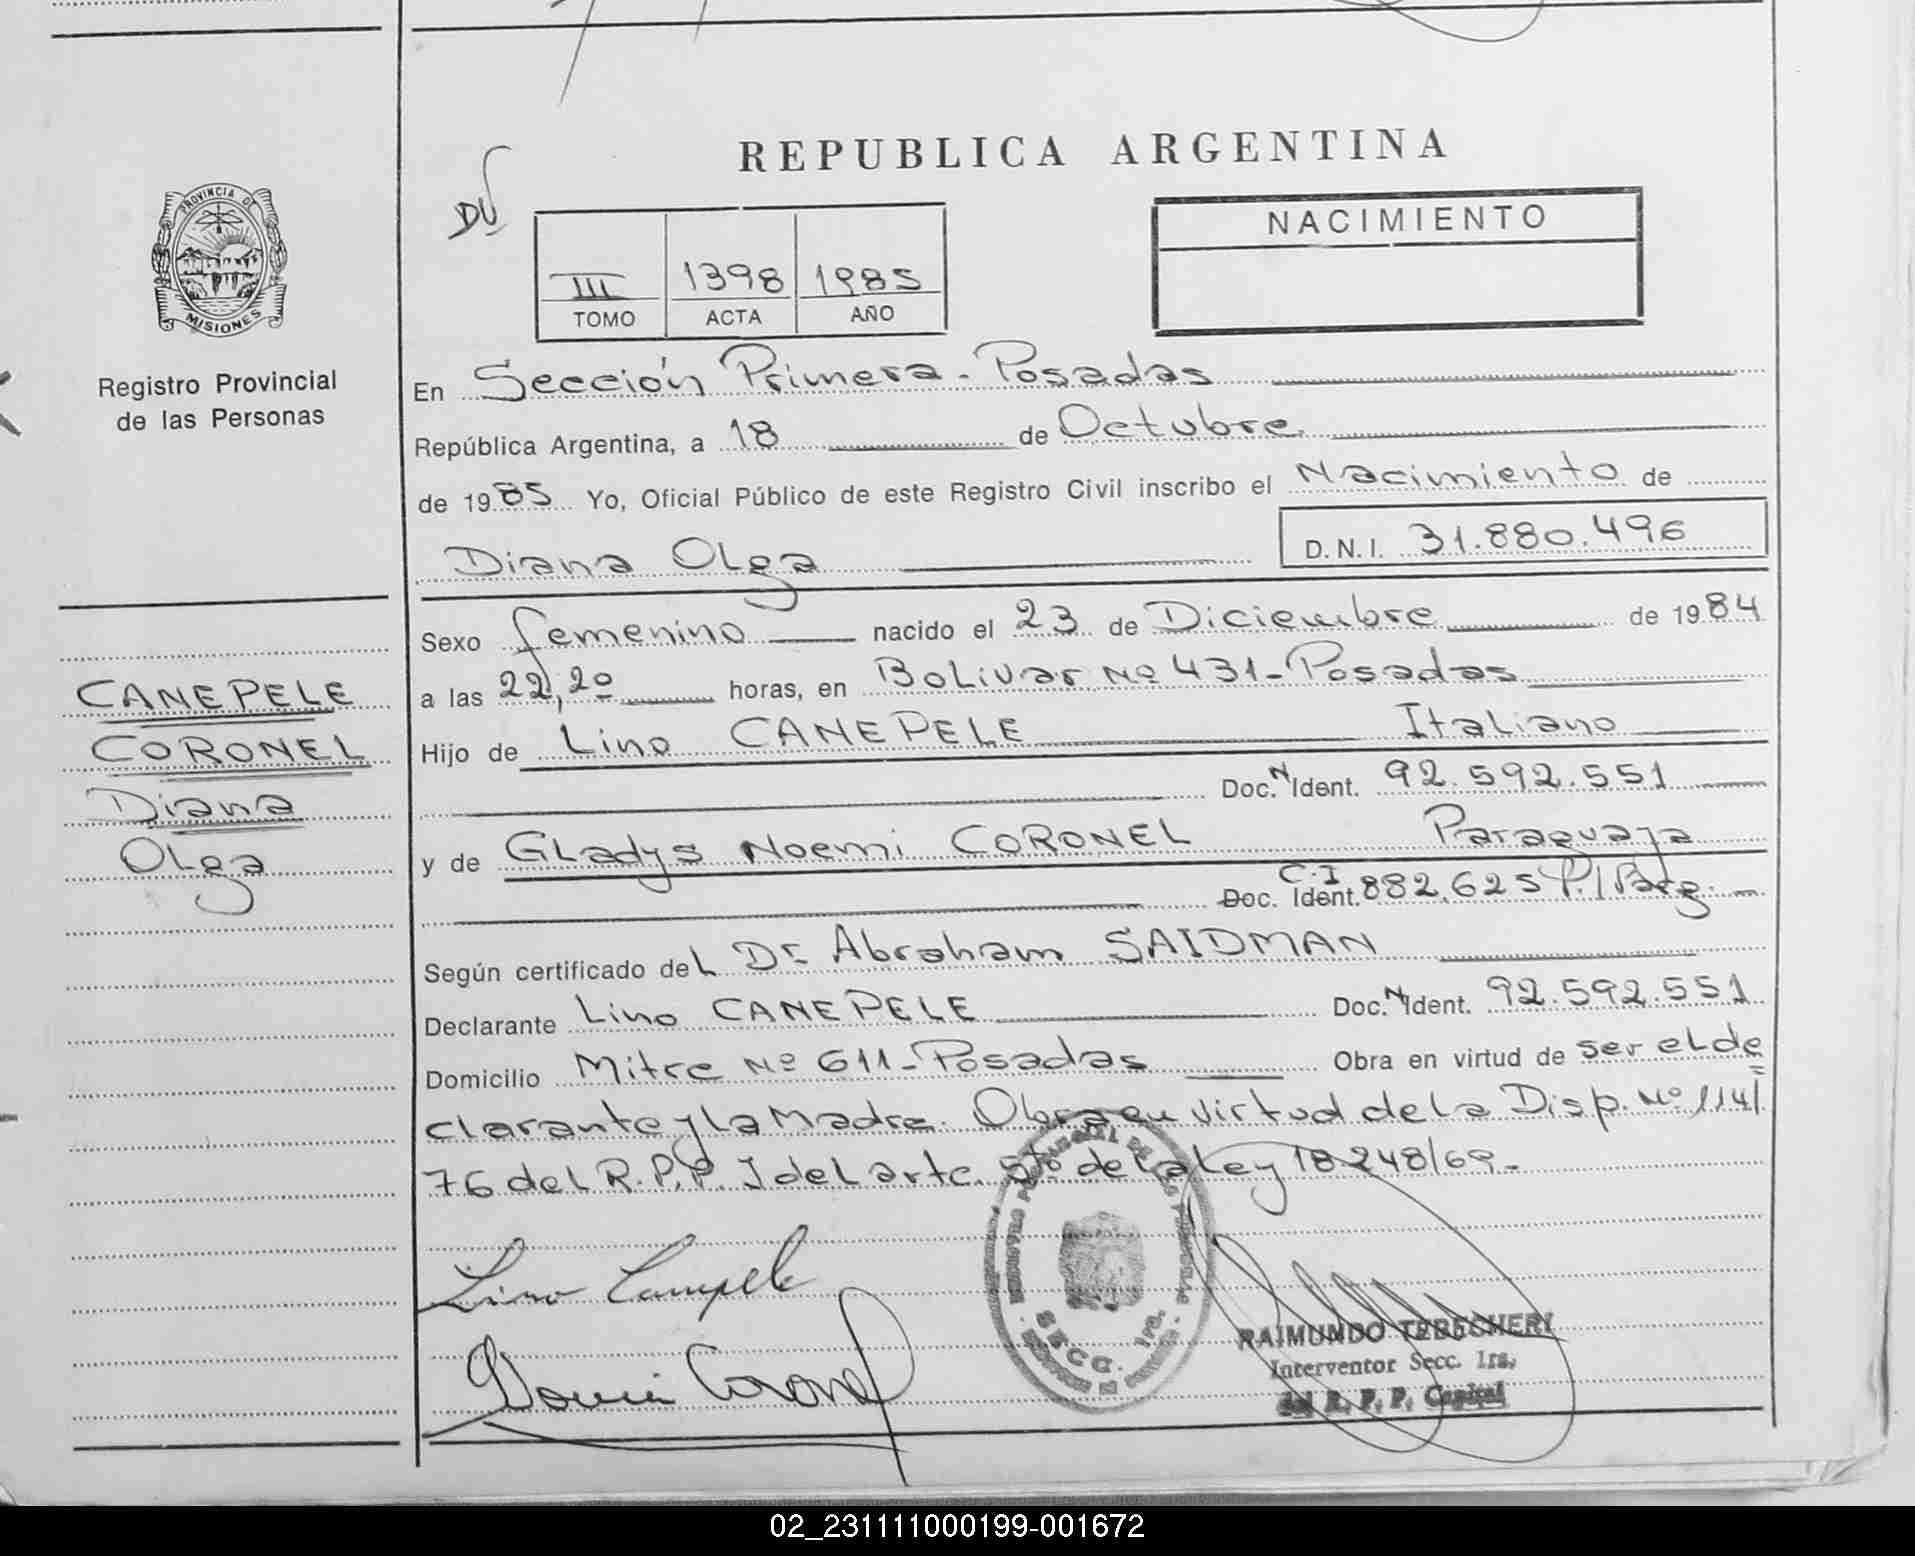 REPUBLICA ARGENTINA
PROVINCIA DE
MISIONES
Registro Provincial
de las Personas
DU
III 1398 1985
TOMO ACTA AÑO
NACIMIENTO
En Sección Primera - Posadas
República Argentina, a 18 de Octubre
de 1985 Yo, Oficial Público de este Registro Civil inscribo el Nacimiento de
Diana Olga D.N.I. 31.880.496
Sexo femenino nacido el 23 de Diciembre de 1984
a las 22,20 horas, en Bolivar Nº 431 - Posadas
Hijo de Lino CANEPELE Italiano
Doc. N Ident. 92.592.551
y de Gladys Noemi CORONEL Paraguaya
C.I
Doc. Ident. 882.625
Según certificado del Dr. Abraham SAIDMAN
Declarante Lino CANEPELE Doc. N Ident. 92.592.551
Domicilio Mitre Nº 611 - Posadas Obra en virtud de ser el de
clarante y la Madre. Obra en virtud de la Disp. Nº 114/
76 del R.P.P. I del artc. 5to de la Ley 18.248/69.-
CANEPELE
CORONEL
Diana
Olga
Lino Canepele
Noemi Coronel
SECC. 1ra.
RAIMUNDO TEBECHERI
Interventor Secc. 1ra.
del R. P. P. Capital
02_231111000199-001672